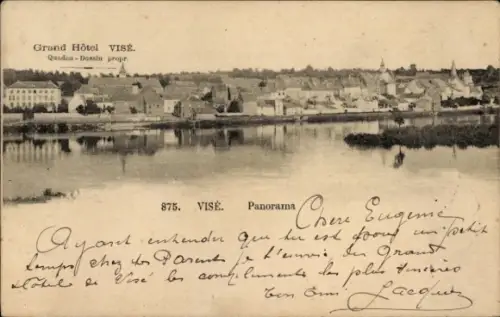 Grand Hôtel VISÉ.
Quaden-Dossin propr.
875. VISÉ. Panorama
Chère Eugénie
Ayant entendu que tu est pour un petit
temps chez tes Parents je t'envois du Grand
Hôtel de Visé les compliments les plus sincères
Ton Jacques